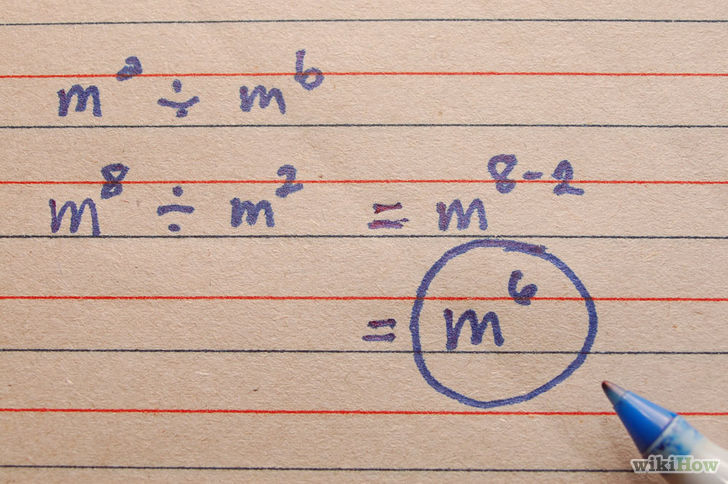 mᵃ ÷ mᵇ
m⁸ ÷ m² = m⁸⁻²
= m⁶
wikiHow